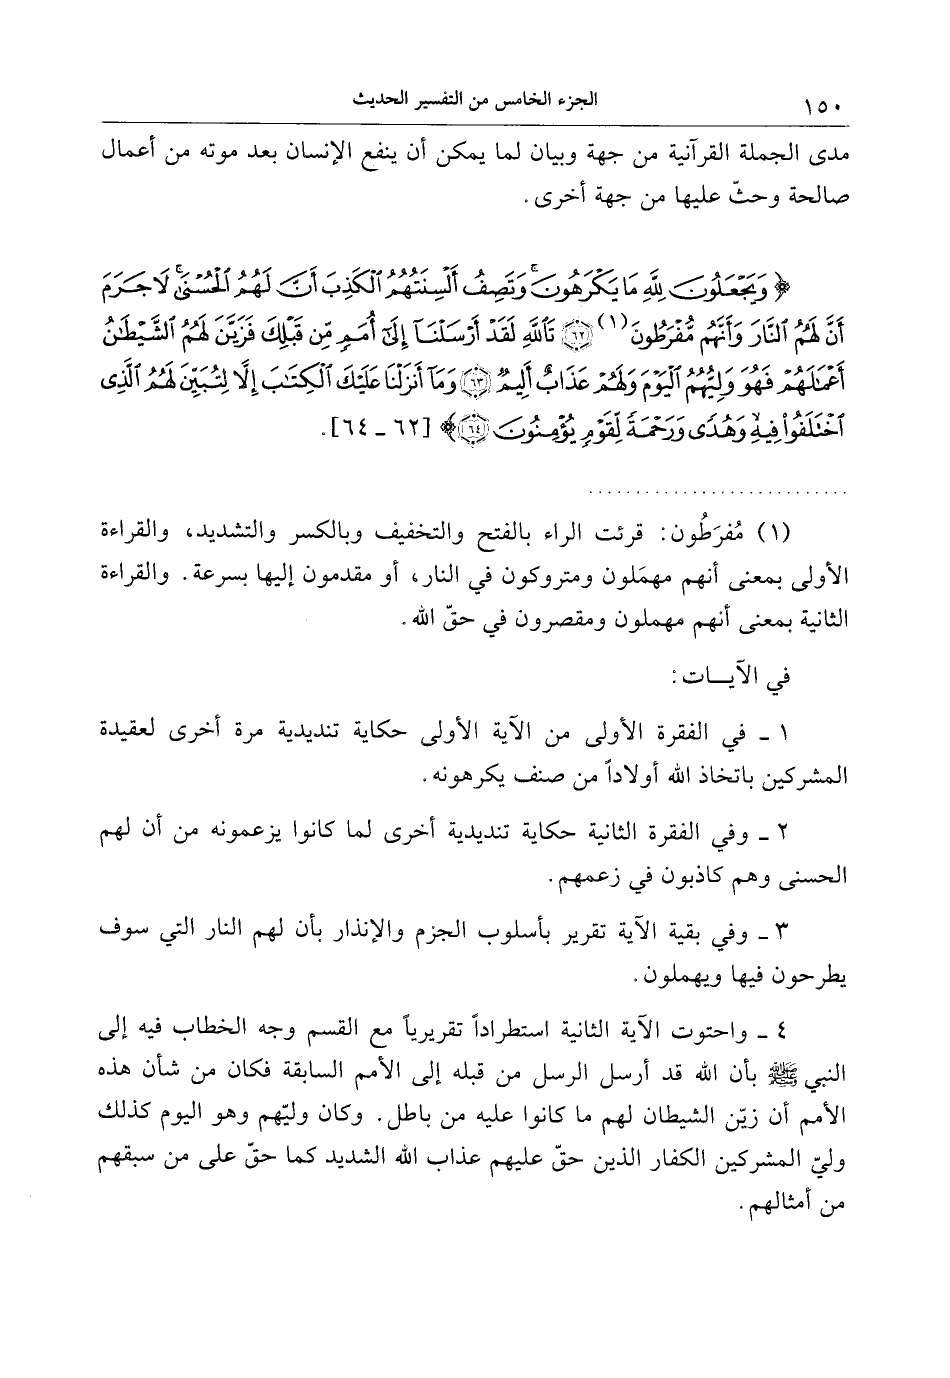 ١٥٠ الجزء الخامس من التفسير الحديث
مدى الجملة القرآنية من جهة وبيان لما يمكن أن ينفع الإنسان بعد موته من أعمال
صالحة وحثّ عليها من جهة أخرى.
﴿ وَيَجْعَلُونَ لِلَّهِ مَا يَكْرَهُونَۚ وَتَصِفُ أَلْسِنَتُهُمُ ٱلْكَذِبَ أَنَّ لَهُمُ ٱلْحُسْنَىٰۚ لَا جَرَمَ
أَنَّ لَهُمُ ٱلنَّارَ وَأَنَّهُم مُّفْرَطُونَ (١) ٦٢ تَٱللَّهِ لَقَدْ أَرْسَلْنَآ إِلَىٰٓ أُمَمٍ مِّن قَبْلِكَ فَزَيَّنَ لَهُمُ ٱلشَّيْطَٰنُ
أَعْمَٰلَهُمْ فَهُوَ وَلِيُّهُمُ ٱلْيَوْمَ وَلَهُمْ عَذَابٌ أَلِيمٌ ٦٣ وَمَآ أَنزَلْنَا عَلَيْكَ ٱلْكِتَٰبَ إِلَّا لِتُبَيِّنَ لَهُمُ ٱلَّذِى
ٱخْتَلَفُوا۟ فِيهِۙ وَهُدًى وَرَحْمَةً لِّقَوْمٍ يُؤْمِنُونَ ٦٤ ﴾ [٦٢ ـ ٦٤].
(١) مُفرَطُون: قرئت الراء بالفتح والتخفيف وبالكسر والتشديد، والقراءة
الأولى بمعنى أنهم مهمَلون ومتروكون في النار، أو مقدمون إليها بسرعة. والقراءة
الثانية بمعنى أنهم مهملون ومقصرون في حقّ الله.
في الآيـــات:
١ ـ في الفقرة الأولى من الآية الأولى حكاية تنديدية مرة أخرى لعقيدة
المشركين باتخاذ الله أولاداً من صنف يكرهونه.
٢ ـ وفي الفقرة الثانية حكاية تنديدية أخرى لما كانوا يزعمونه من أن لهم
الحسنى وهم كاذبون في زعمهم.
٣ ـ وفي بقية الآية تقرير بأسلوب الجزم والإنذار بأن لهم النار التي سوف
يطرحون فيها ويهملون.
٤ ـ واحتوت الآية الثانية استطراداً تقريرياً مع القسم وجه الخطاب فيه إلى
النبي ﷺ بأن الله قد أرسل الرسل من قبله إلى الأمم السابقة فكان من شأن هذه
الأمم أن زيّن الشيطان لهم ما كانوا عليه من باطل. وكان وليّهم وهو اليوم كذلك
وليّ المشركين الكفار الذين حقّ عليهم عذاب الله الشديد كما حقّ على من سبقهم
من أمثالهم.